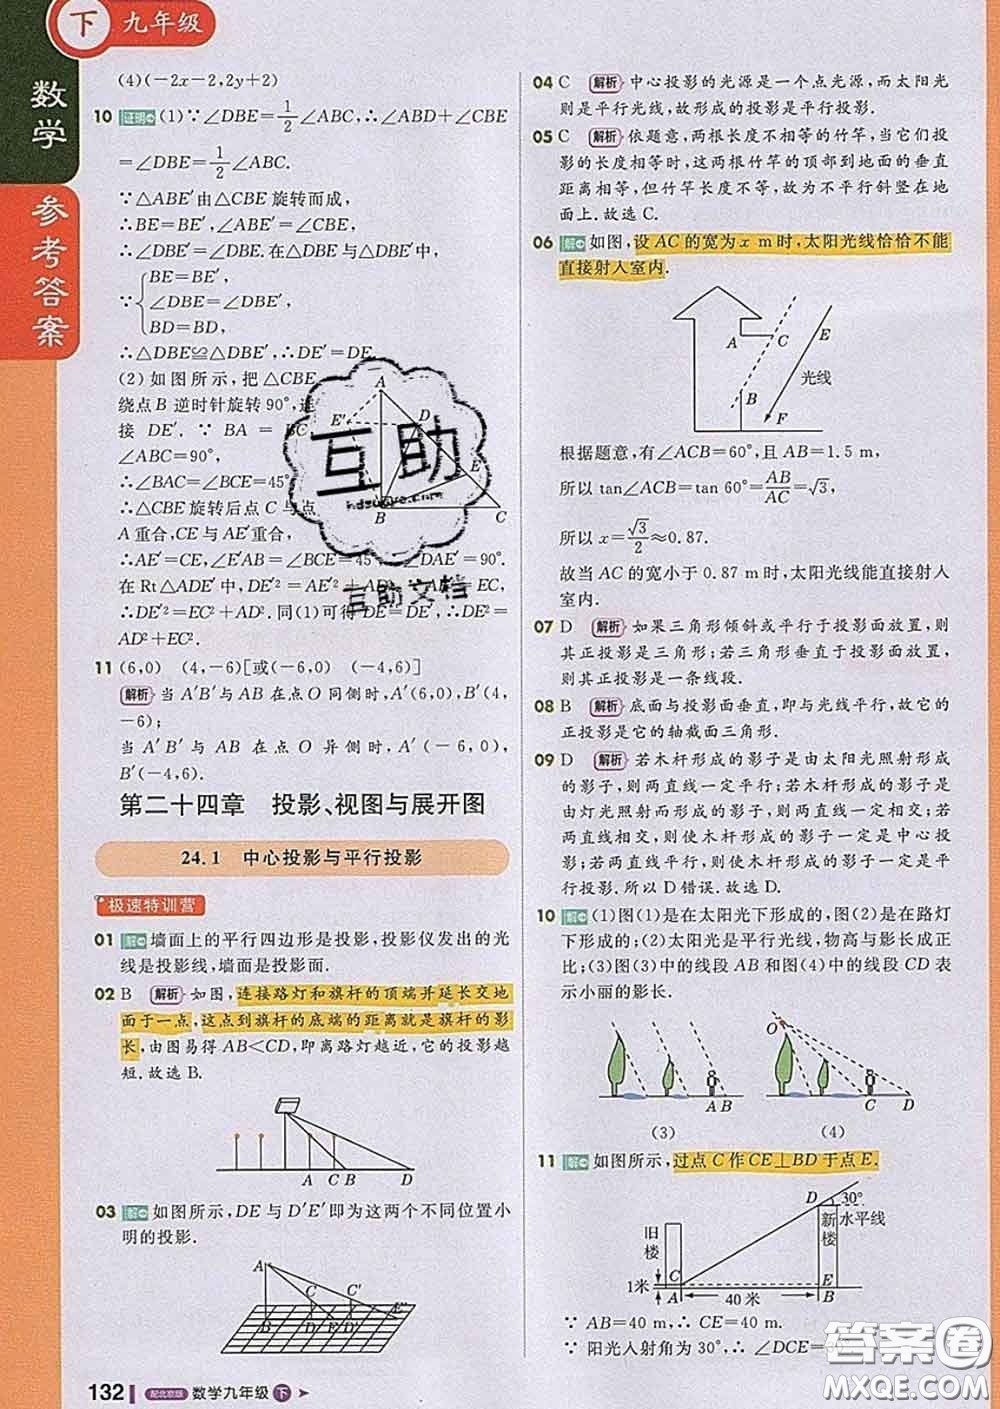 下 九年级
数学
参考答案
(4)(－2x－2,2y＋2)
10 证明 (1)∵∠DBE＝1/2∠ABC,∴∠ABD＋∠CBE
＝∠DBE＝1/2∠ABC.
∵△ABE′由△CBE旋转而成,
∴BE＝BE′,∠ABE′＝∠CBE,
∴∠DBE′＝∠DBE.在△DBE与△DBE′中,
∵{BE＝BE′,
∠DBE＝∠DBE′,
BD＝BD,
∴△DBE≌△DBE′,∴DE′＝DE.
(2)如图所示,把△CBE
绕点B逆时针旋转90°,连
接DE′.∵BA＝BC,
∠ABC＝90°,
∴∠BAC＝∠BCE＝45°
∴△CBE旋转后点C与点
A重合,CE与AE′重合,
∴AE′＝CE,∠E′AB＝∠BCE＝45°,∴∠DAE′＝90°.
在Rt△ADE′中,DE′²＝AE′²＋AD²,∵AE′＝EC,
∴DE′²＝EC²＋AD².同(1)可得DE′＝DE,∴DE²＝
AD²＋EC².
11 (6,0) (4,－6)[或(－6,0) (－4,6)]
解析 当A′B′与AB在点O同侧时,A′(6,0),B′(4,
－6);
当A′B′与AB在点O异侧时,A′(－6,0),
B′(－4,6).
第二十四章 投影、视图与展开图
24.1 中心投影与平行投影
极速特训营
01 解 墙面上的平行四边形是投影,投影仪发出的光
线是投影线,墙面是投影面.
02 B 解析 如图,连接路灯和旗杆的顶端并延长交地
面于一点,这点到旗杆的底端的距离就是旗杆的影
长,由图易得AB＜CD,即离路灯越近,它的投影越
短.故选B.
A C B D
03 解 如图所示,DE与D′E′即为这两个不同位置小
明的投影.
A C C′ B D E D′ E′
132 配北京版 数学九年级 下
04 C 解析 中心投影的光源是一个点光源,而太阳光
则是平行光线,故形成的投影是平行投影.
05 C 解析 依题意,两根长度不相等的竹竿,当它们投
影的长度相等时,这两根竹竿的顶部到地面的垂直
距离相等,但竹竿长度不等,故为不平行斜竖在地
面上.故选C.
06 解 如图,设AC的宽为x m时,太阳光线恰恰不能
直接射入室内.
A C E
光线
B
F
根据题意,有∠ACB＝60°,且AB＝1.5 m,
所以tan∠ACB＝tan 60°＝AB/AC＝√3,
所以x＝√3/2≈0.87.
故当AC的宽小于0.87 m时,太阳光线能直接射入
室内.
07 D 解析 如果三角形倾斜或平行于投影面放置,则
其正投影是三角形;若三角形垂直于投影面放置,
则其正投影是一条线段.
08 B 解析 底面与投影面垂直,即与光线平行,故它的
正投影是它的轴截面三角形.
09 D 解析 若木杆形成的影子是由太阳光照射形成
的影子,则两直线一定平行;若木杆形成的影子是
由灯光照射而形成的影子,则两直线一定相交;若
两直线相交,则使木杆形成的影子一定是中心投
影;若两直线平行,则使木杆形成的影子不一定是
太阳光,所以D错误.故选D.
10 解 (1)图(1)是在太阳光下形成的,图(2)是在路灯
下形成的;(2)太阳光是平行光线,物高与影长成正
比;(3)图(3)中的线段AB和图(4)中的线段CD表
示小丽的影长.
O
A B C D
(3) (4)
11 解 如图所示,过点C作CE⊥BD于点E.
D 30°
水平线
旧楼 新楼
1米 C E
A 40米 B
∵AB＝40 m,∴CE＝40 m.
∵阳光入射角为30°,∴∠DCE＝
互助
hdsuoye.com
互助文档
答案圈
MXQE.COM